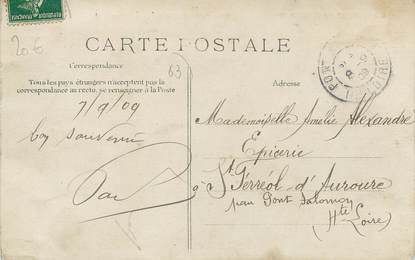 20€
CARTE POSTALE
Correspondance
63
Tous les pays étrangers n'acceptent pas la
correspondance au recto, se renseigner à la Poste
7/9/09
bon souvenir
Adresse
Mademoiselle Amélie Alexandre
Epicerie
St Férréol-d'Auroure
par Pont Salomon
(Hte Loire)